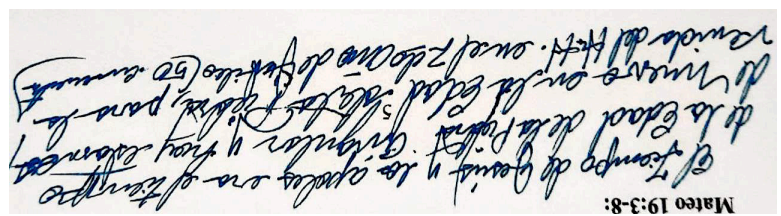 Mateo 19:3-8:
El tiempo de Jesús y lo apoles era el tiempo
de la Edad de la Piedra Angular y hoy estamos
de nuevo en la Edad de la Piedra, para la
venida del H.H. en el 7 de año de Jubileo (50